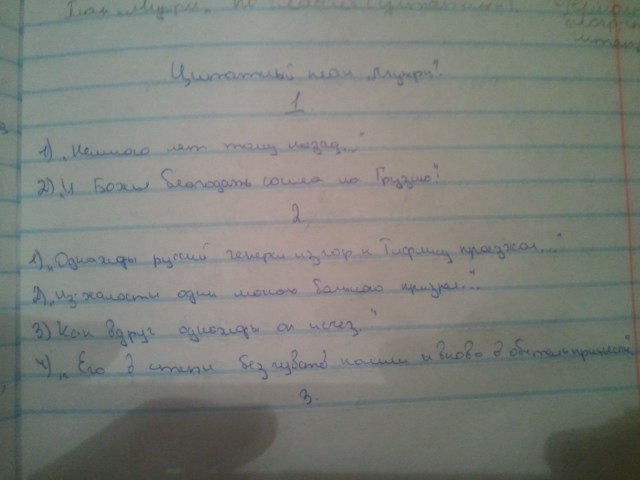 Цитатный план „Мцыри".
1.
1) „Немного лет тому назад..."
2) „И Божья благодать сошла на Грузию".
2.
1) „Однажды русский генерал из гор к Тифлису проезжал..."
2) „Из жалости один монах больного призрел..."
3) Как вдруг однажды он исчез."
4) „Его в степи без чувств нашли и вновь в обитель принесли"
3.